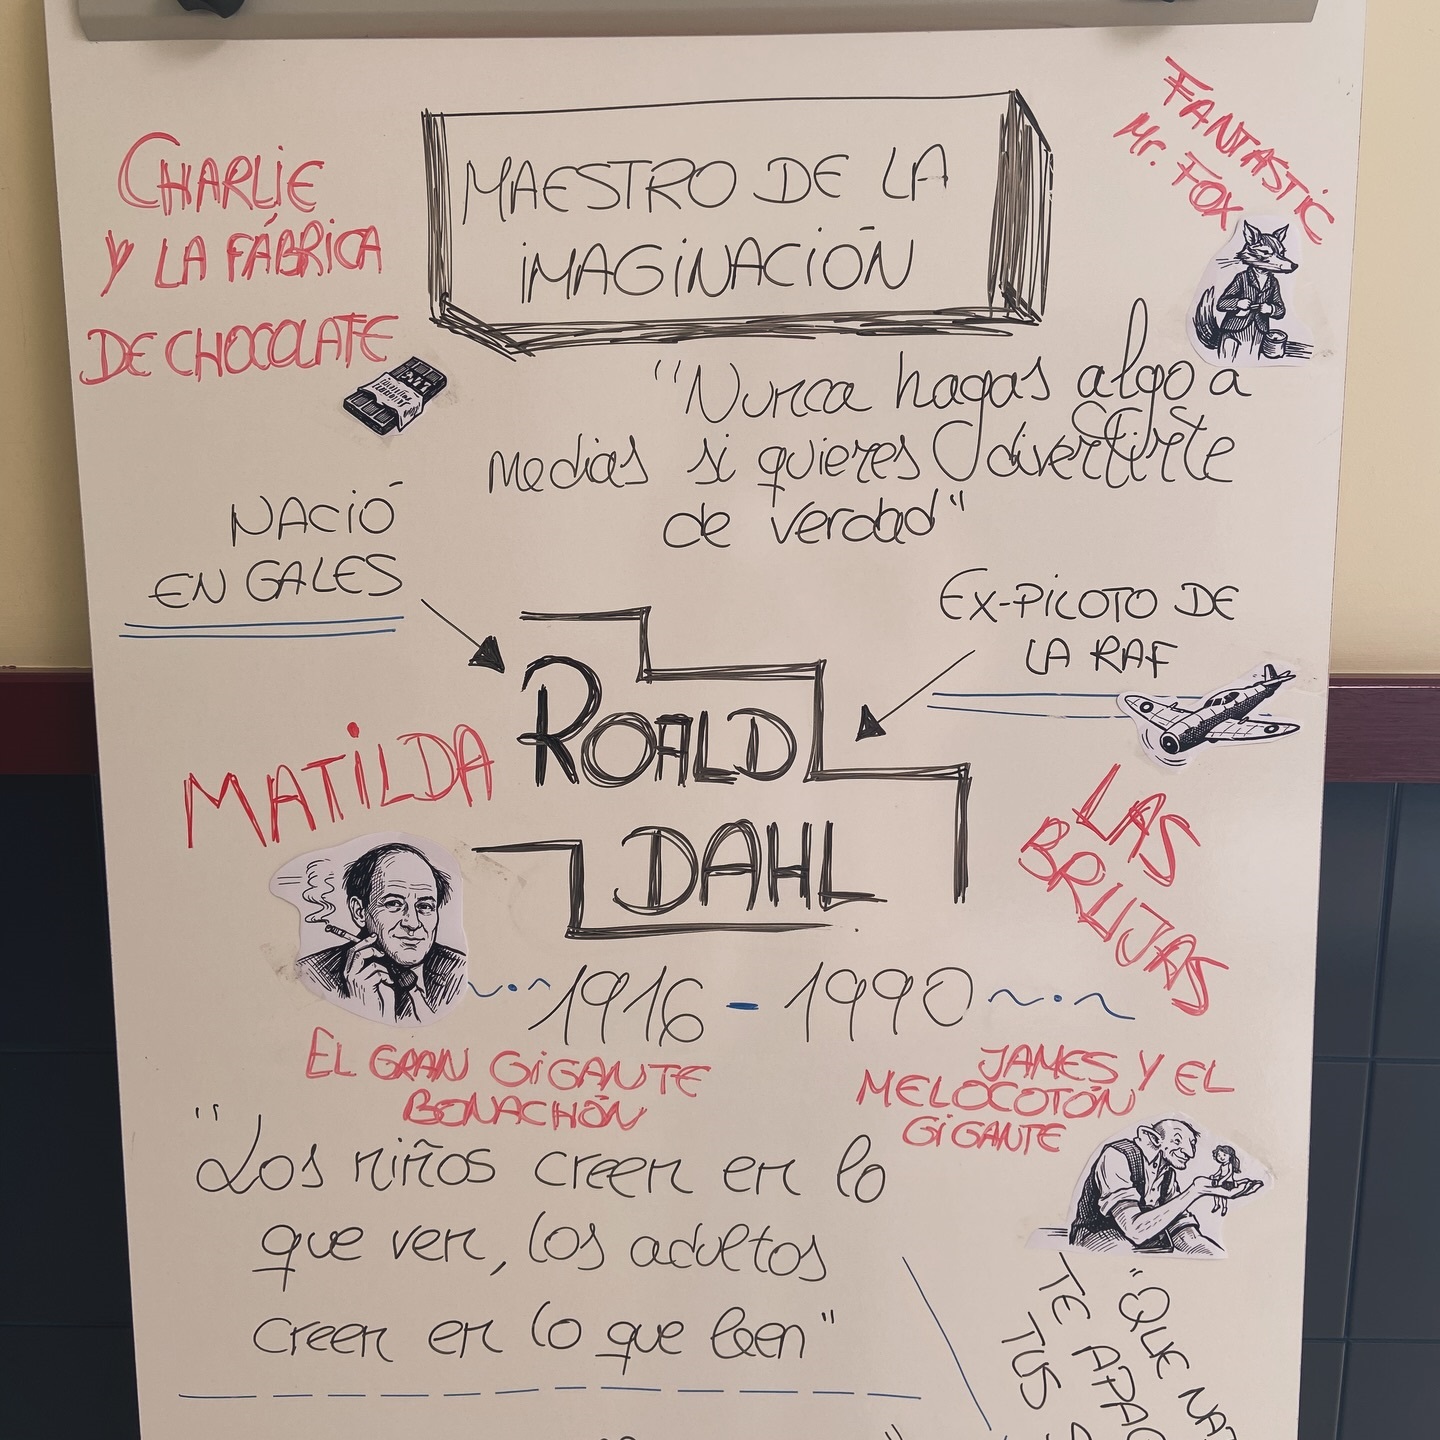 MAESTRO DE LA
IMAGINACIÓN
CHARLIE
Y LA FÁBRICA
DE CHOCOLATE
FANTASTIC
Mr. FOX
"Nunca hagas algo a
medias si quieres divertirte
de verdad"
NACIÓ
EN GALES
EX-PILOTO DE
LA RAF
ROALD
DAHL
MATILDA
LAS
BRUJAS
1916 - 1990
EL GRAN GIGANTE
BONACHÓN
JAMES Y EL
MELOCOTÓN
GIGANTE
"Los niños creen en lo
que ven, los adultos
creen en lo que leen"
"QUE
TE
TUS